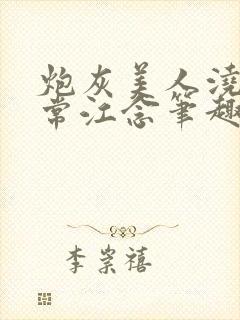 炮灰美人浇
常江念笔趣
李崇禧